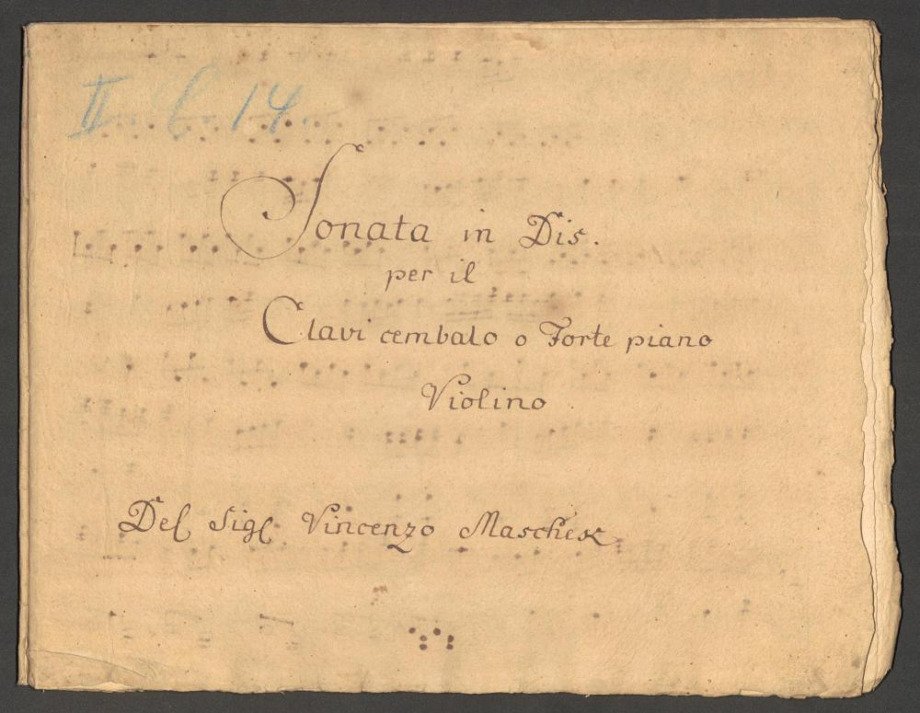 II C 14.
Sonata in Dis.
per il
Clavi cembalo o Forte piano
Violino
Del Sigl Vincenzo Maschek